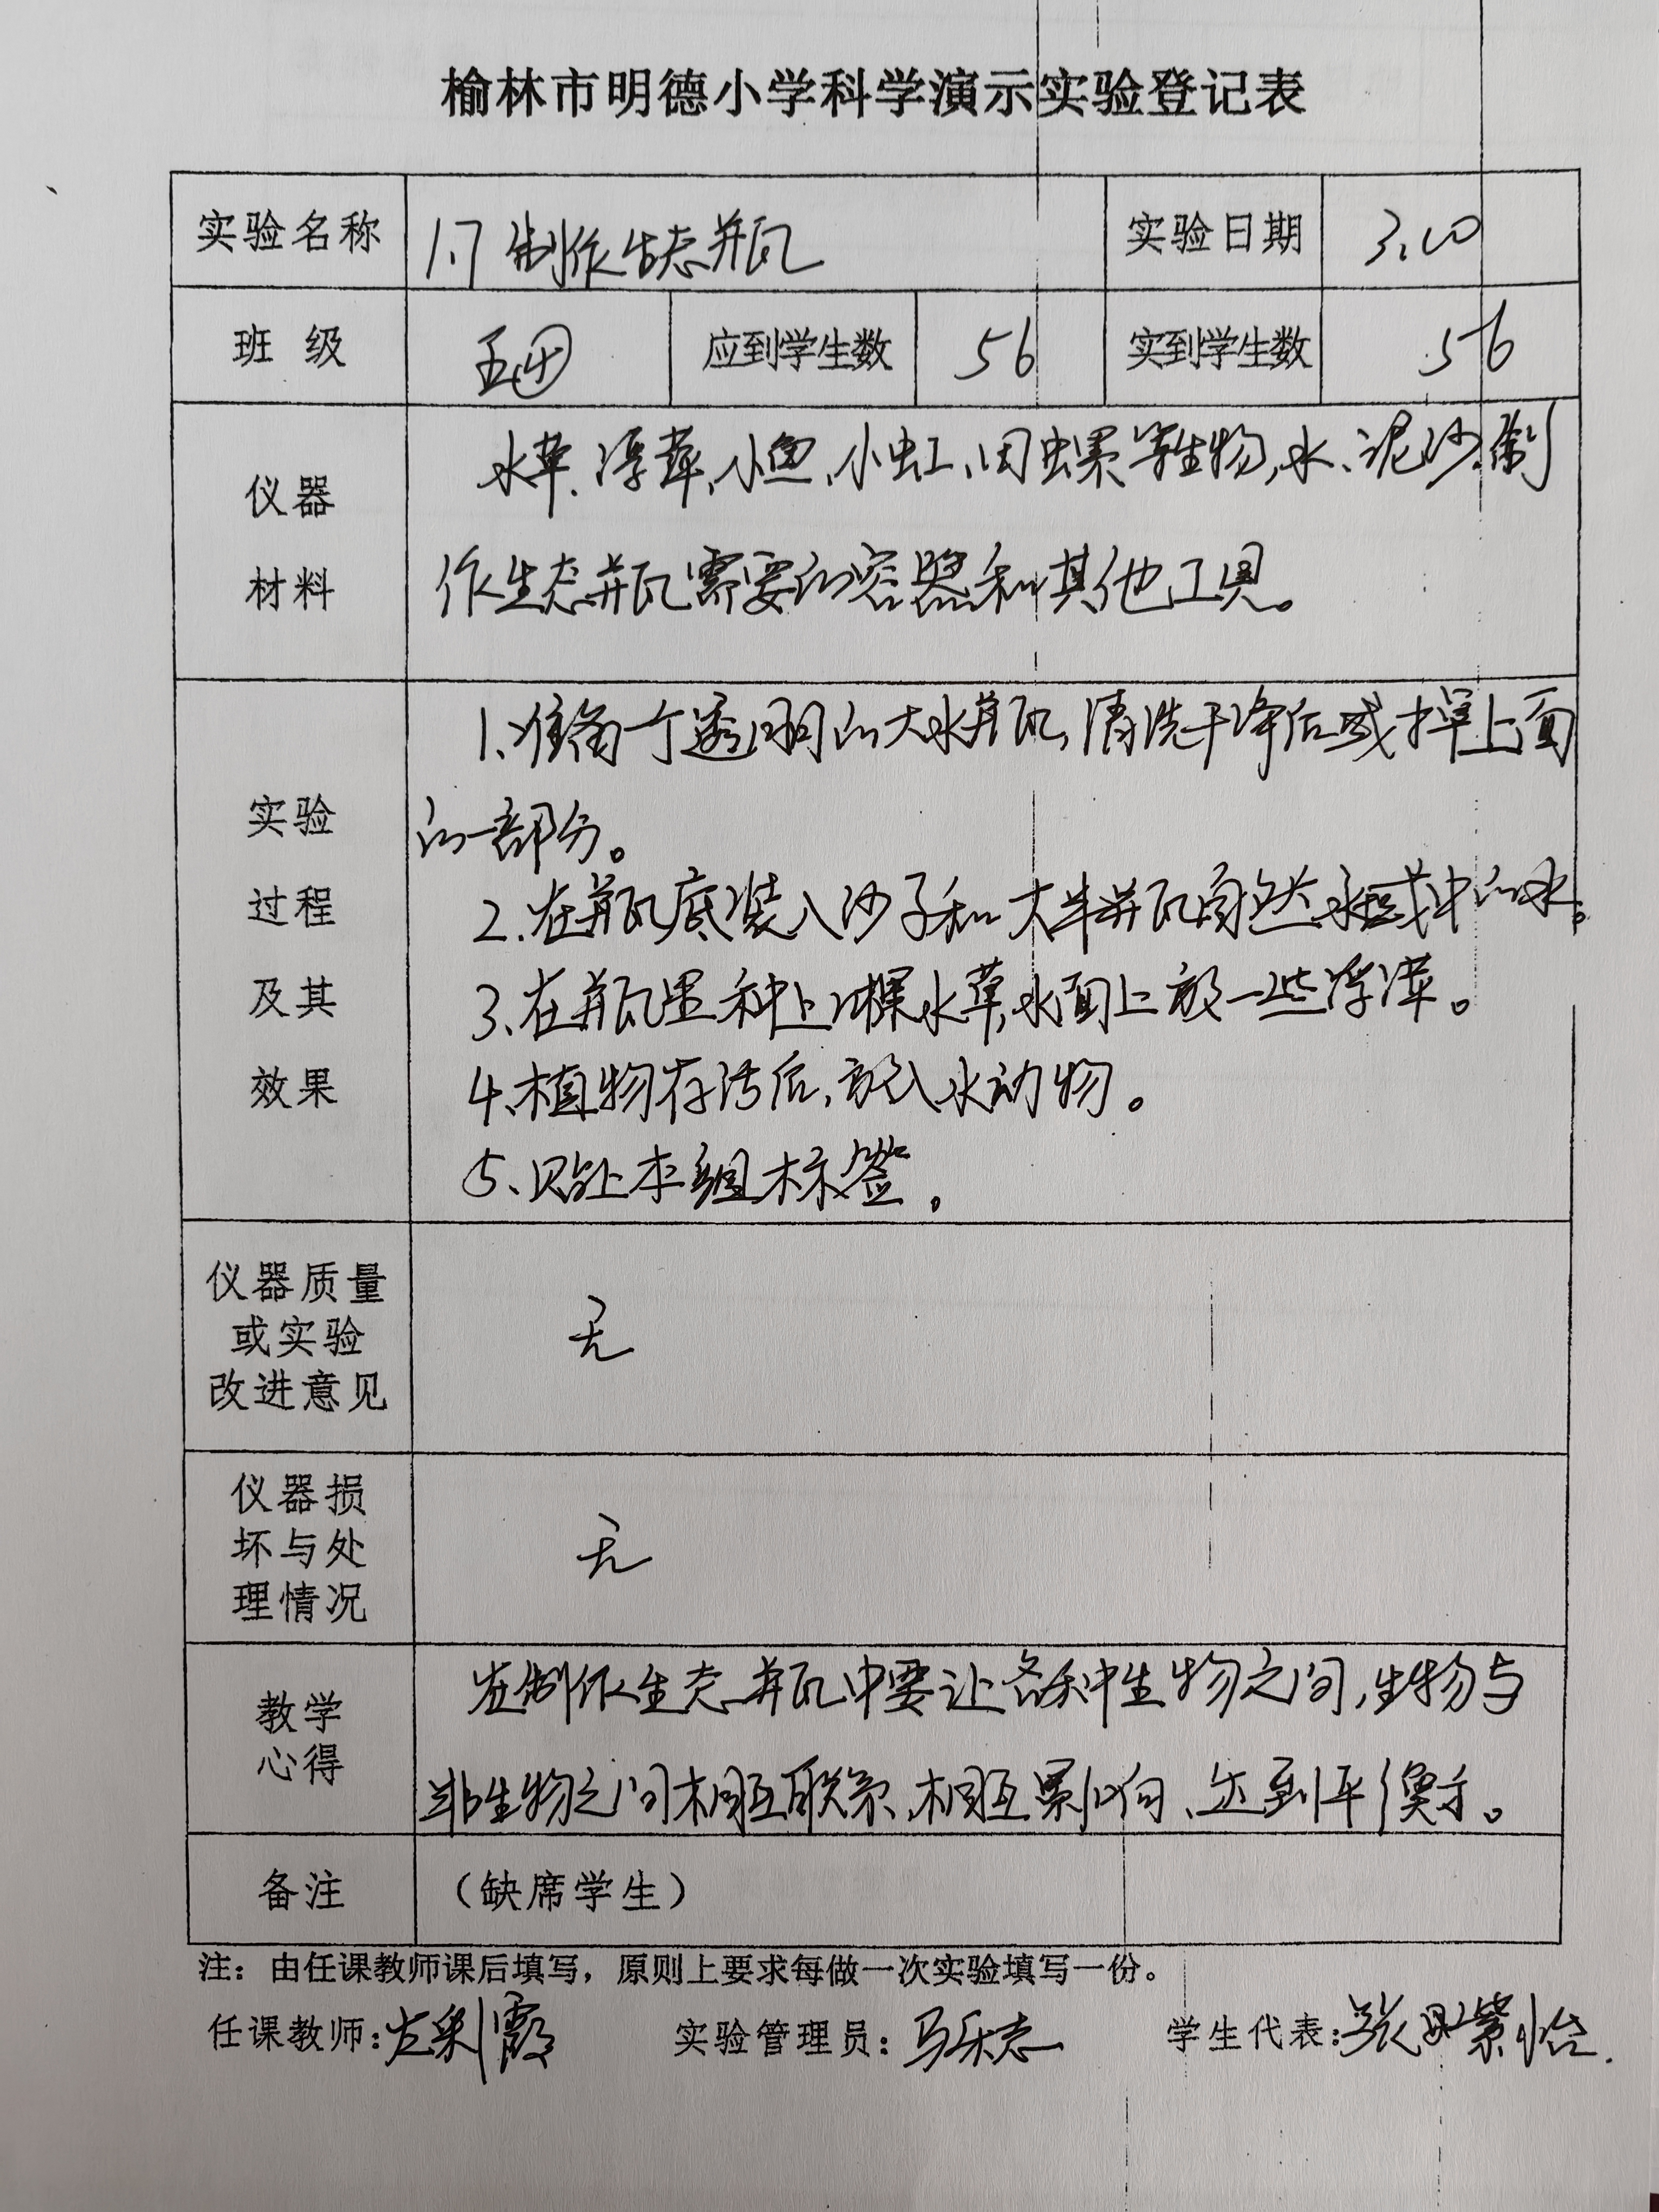 榆林市明德小学科学演示实验登记表
实验名称 1.7 制作生态瓶 实验日期 3.10
班 级 五④ 应到学生数 56 实到学生数 56
仪器 材料
水草、浮萍、小鱼、小虹、田螺等生物,水、泥沙,制
作生态瓶需要的容器和其他工具。
实验 过程 及其 效果
1、准备一个透明的大水瓶,清洗干净后或掉上面
的一部分。
2、在瓶底装入沙子和大半瓶自然水域中的水。
3、在瓶里种上几棵水草,水面上放一些浮萍。
4、植物存活后,放入水动物。
5、贴上本组标签。
仪器质量
或实验
改进意见
无
仪器损
坏与处
理情况
无
教学
心得
在制作生态瓶中要让各种生物之间,生物与
非生物之间相互联系、相互影响、达到平衡。
备注 (缺席学生)
注:由任课教师课后填写,原则上要求每做一次实验填写一份。
任课教师: 霞 实验管理员:马乐志 学生代表:张 紫怡.